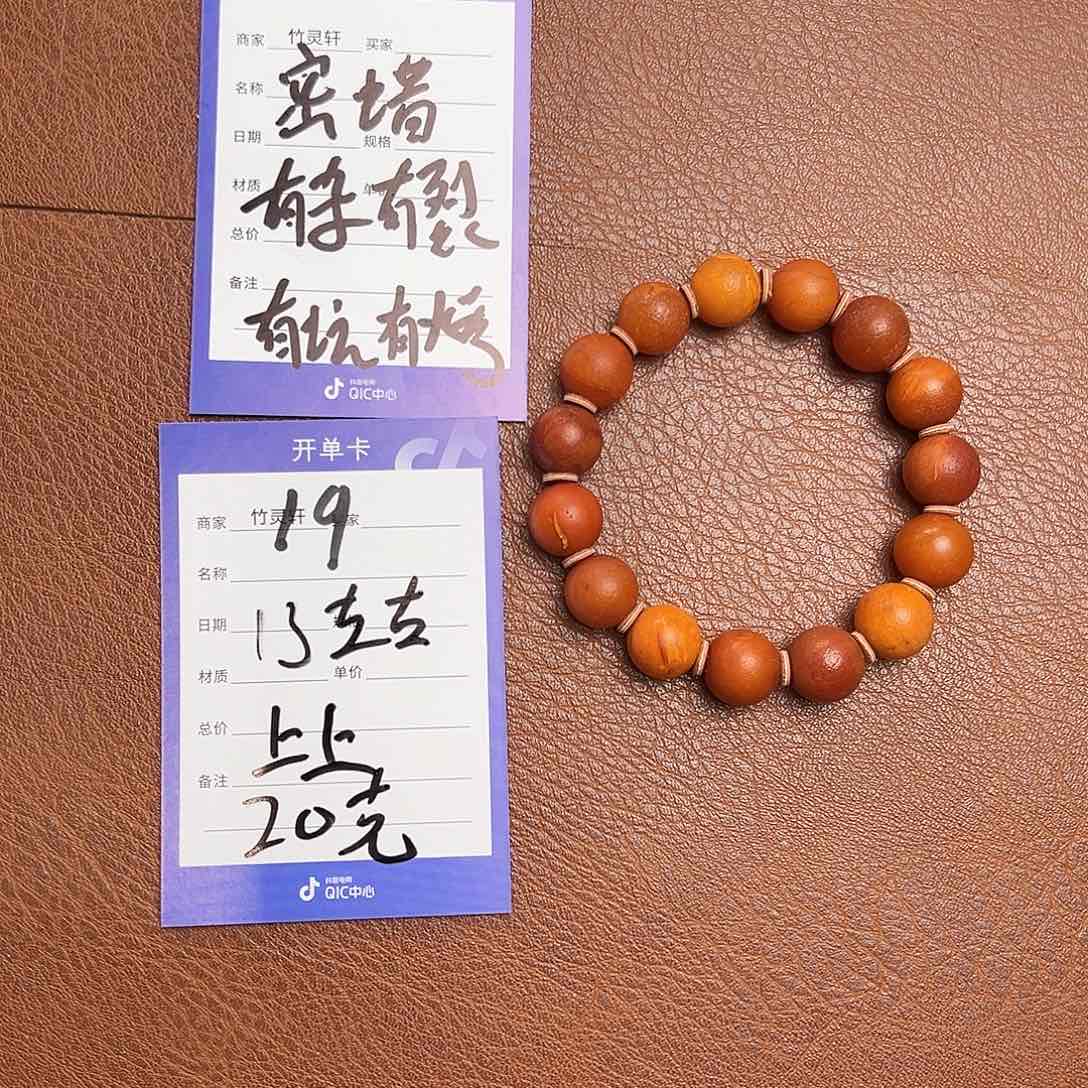 商家 竹灵轩 买家
名称 密 蜡
日期 规格
材质 有杂 有裂
总价
备注
有坑 有烤
抖音电商
QIC中心
开单卡
19
商家 竹灵轩 家
名称
13左右
日期
材质 单价
总价 上上
备注
20克
抖音电商
QIC中心